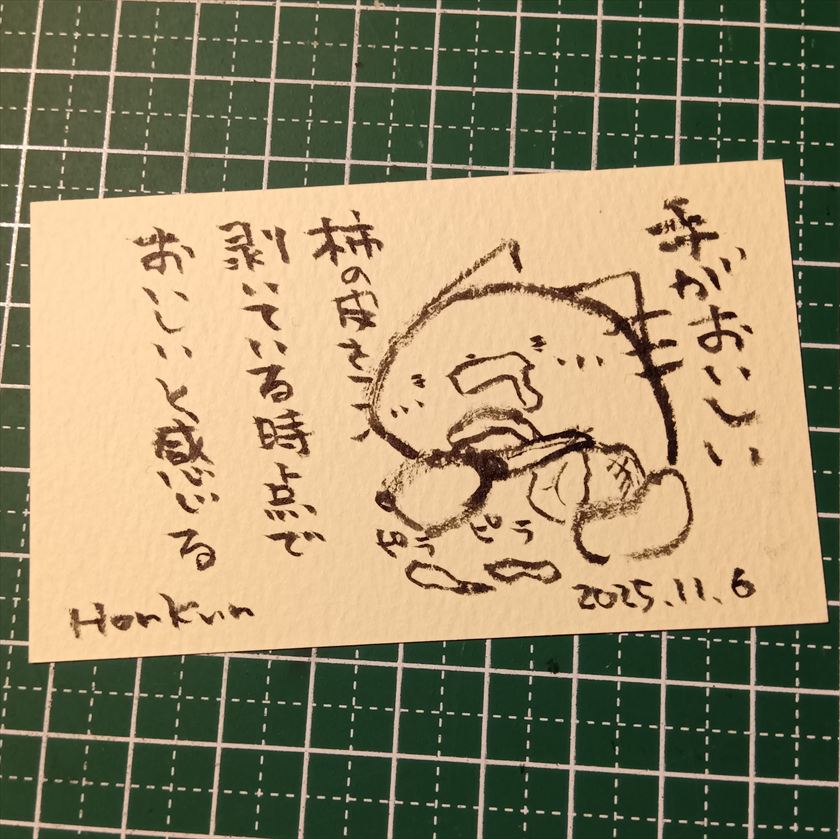 手がおいしい
柿の皮を
剥いている時点で
おいしいと感じる
ピラ
ピラ
2025.11.6
HonKun